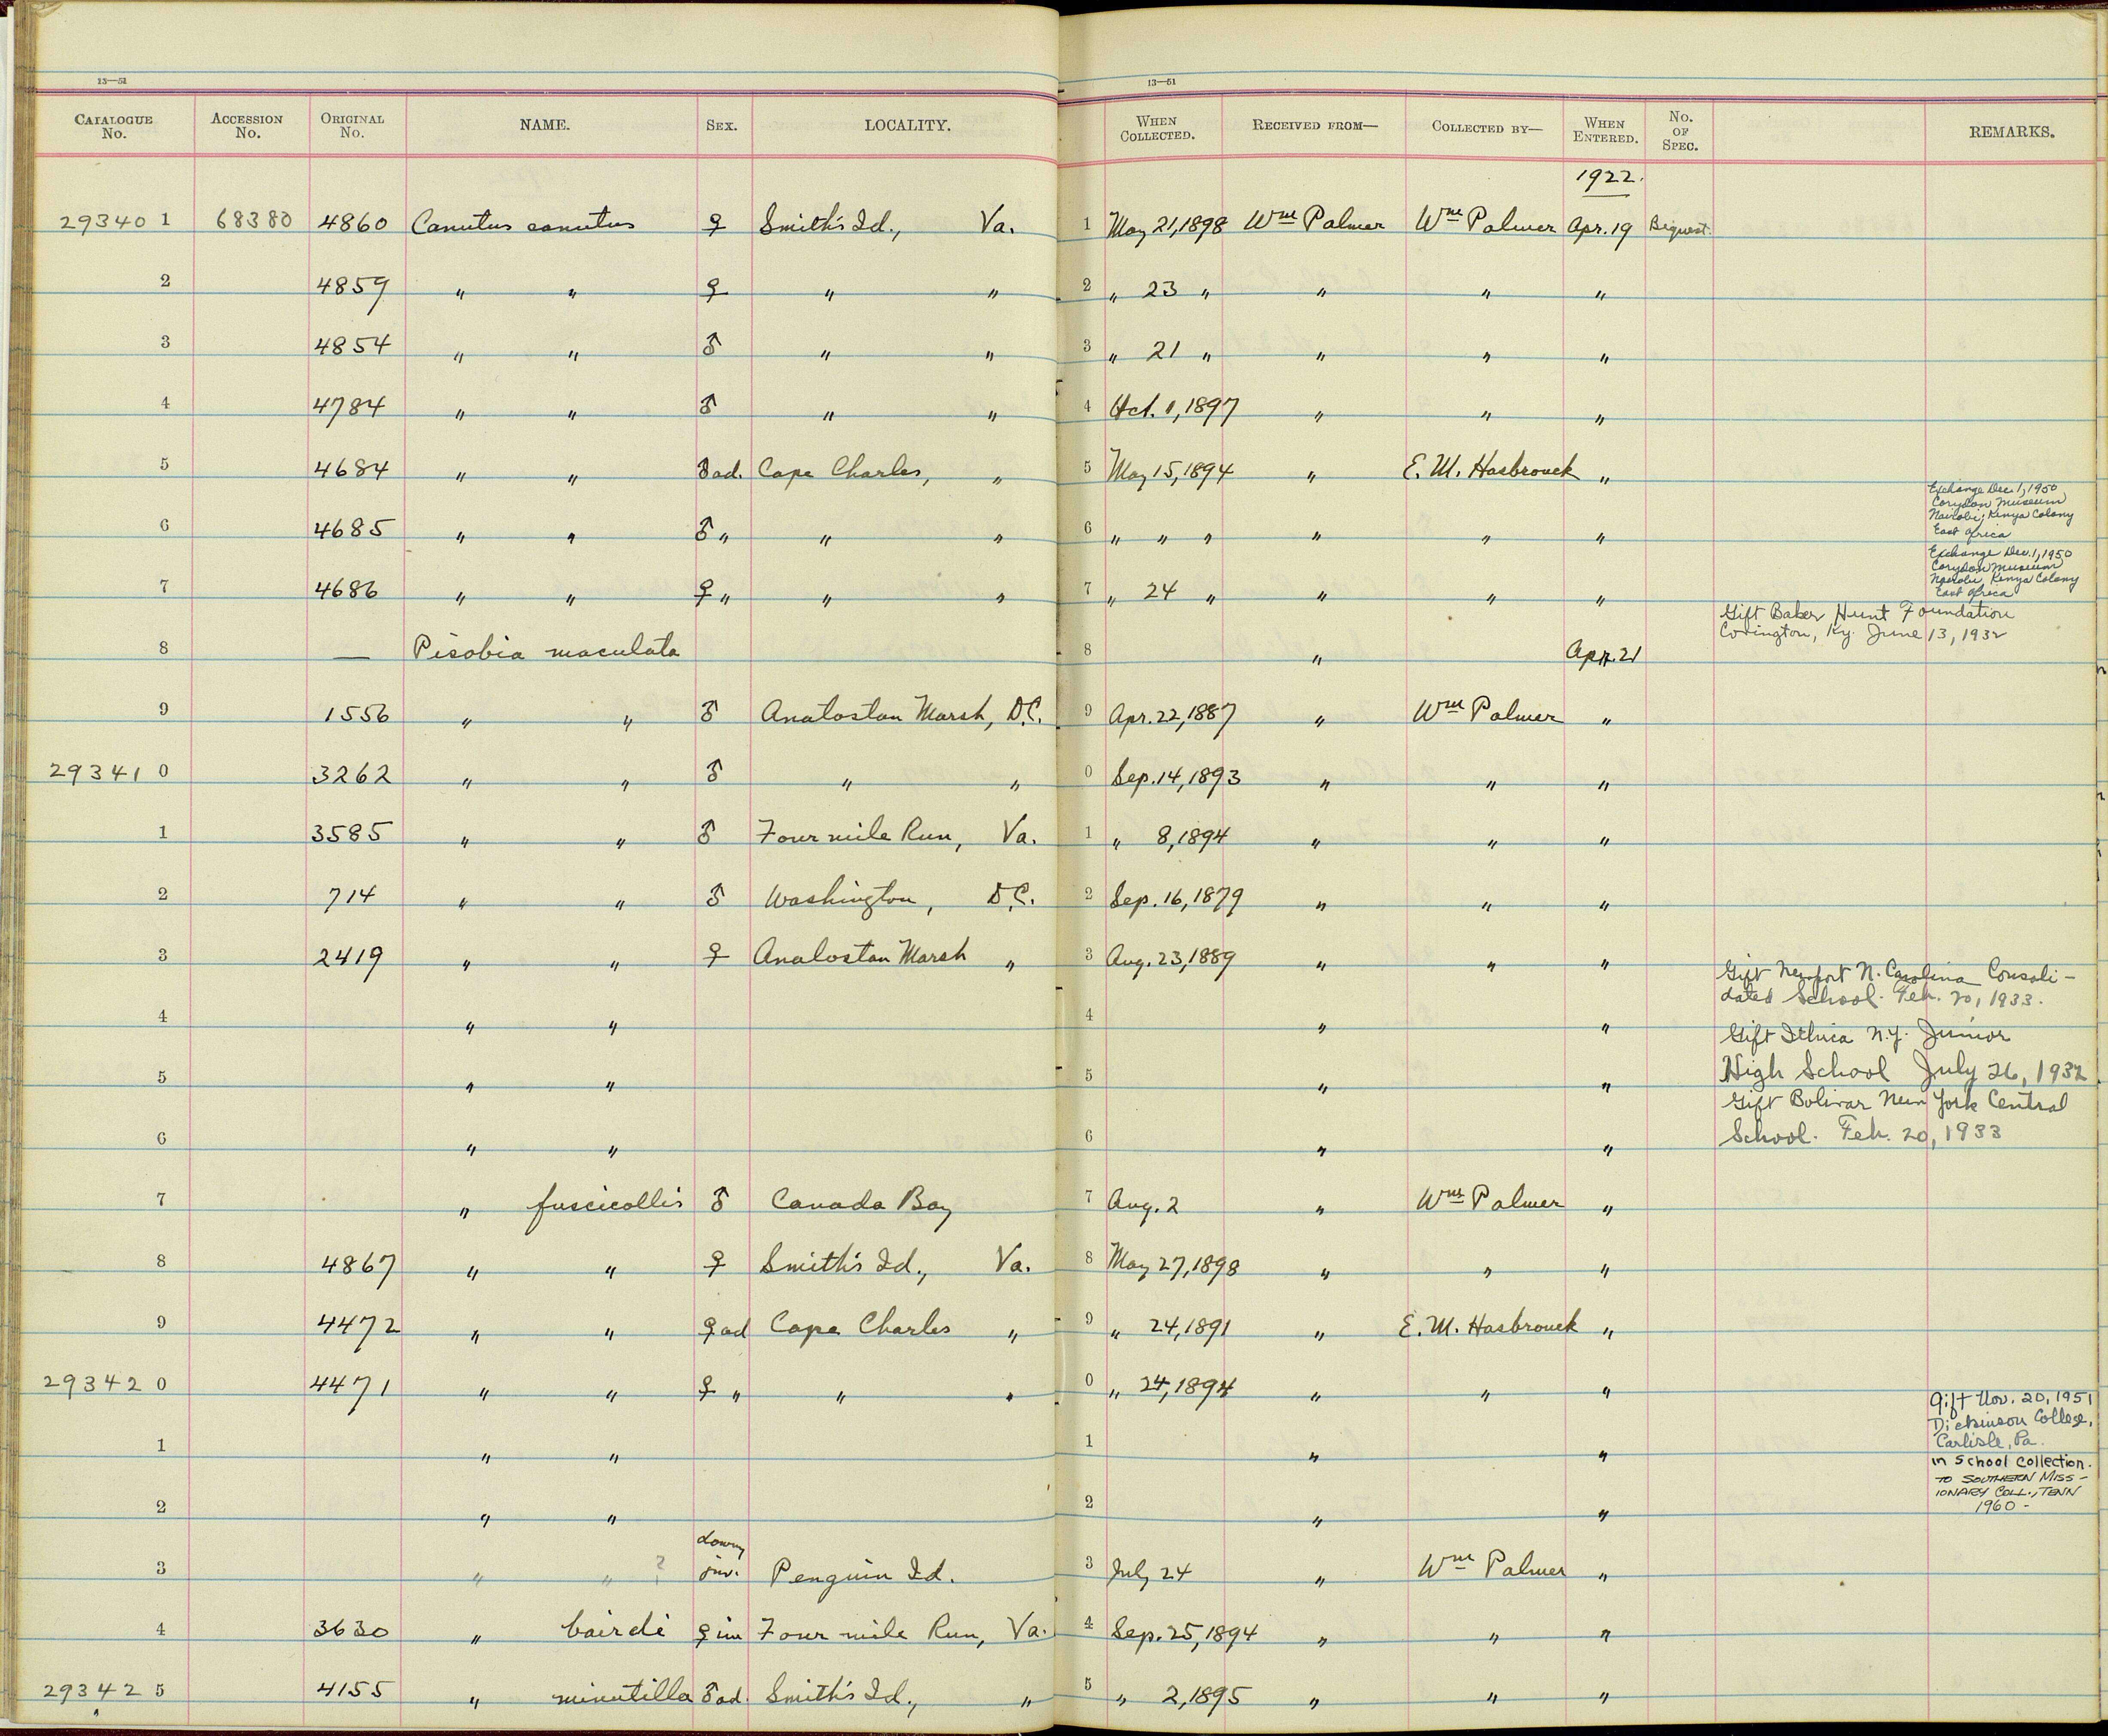 13—51 13—51
CATALOGUE No. ACCESSION No. ORIGINAL No. NAME. SEX. LOCALITY. WHEN COLLECTED. RECEIVED FROM— COLLECTED BY— WHEN ENTERED. No. OF SPEC. REMARKS.
1922.
29340 1 68380 4860 Canutus canutus ♀ Smith's Id., Va. 1 May 21, 1898 Wm Palmer Wm Palmer Apr. 19 Bequest.
2 4859 " " ♀ " " 2 " 23 " " " "
3 4854 " " ♂ " " 3 " 21 " " " "
4 4784 " " ♂ " " 4 Oct. 1, 1897 " " "
5 4684 " " ♂ ad. Cape Charles, " 5 May 15, 1894 " E. M. Hasbrouck "
6 4685 " " ♂ " " " 6 " " " " " "
Exchange Dec. 1, 1950
Coryndon Museum
Nairobi, Kenya Colony
East Africa
7 4686 " " ♀ " " " 7 " 24 " " " "
Exchange Dec. 1, 1950
Coryndon Museum
Nairobi, Kenya Colony
East Africa
8 — Pisobia maculata 8 " Apr. 21
Gift Baker Hunt Foundation
Covington, Ky. June 13, 1932
9 1556 " " ♂ Analostan Marsh, D.C. 9 Apr. 22, 1887 " Wm Palmer "
29341 0 3262 " " ♂ " " 0 Sep. 14, 1893 " " "
1 3585 " " ♂ Four mile Run, Va. 1 " 8, 1894 " " "
2 714 " " ♂ Washington, D.C. 2 Sep. 16, 1879 " " "
3 2419 " " ♀ Analostan Marsh " 3 Aug. 23, 1889 " " "
4 " " 4 " "
Gift Newport N. Carolina Consoli-
dated School. Feb. 20, 1933.
5 " " 5 " "
Gift Ithica N.Y. Junior
High School July 26, 1932
6 " " 6 " "
Gift Bolivar New York Central
School. Feb. 20, 1933
7 " fuscicollis ♂ Canada Bay 7 Aug. 2 " Wm Palmer "
8 4867 " " ♀ Smith's Id., Va. 8 May 27, 1898 " " "
9 4472 " " ♀ ad Cape Charles " 9 " 24, 1891 " E. M. Hasbrouck "
29342 0 4471 " " ♀ " " " 0 " 24, 1894 " " "
1 " " 1 " "
Gift Nov. 20, 1951
Dickinson College,
Carlisle, Pa.
2 " " 2 " "
in School Collection.
TO SOUTHERN MISS-
IONARY COLL., TENN
1960 -
downy
3 " " ? juv. Penguin Id. 3 July 24 " Wm Palmer "
4 3630 " bairdi ♀ im Four mile Run, Va. 4 Sep. 25, 1894 " " "
29342 5 4155 " minutilla ♂ ad. Smith's Id., " 5 " 2, 1895 " " "